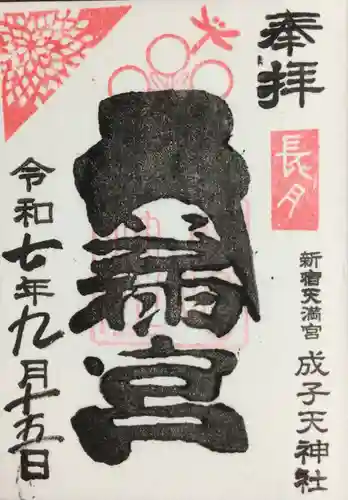 奉拝
長月
新宿天満宮
成子天神社
満宮
令和七年九月十五日